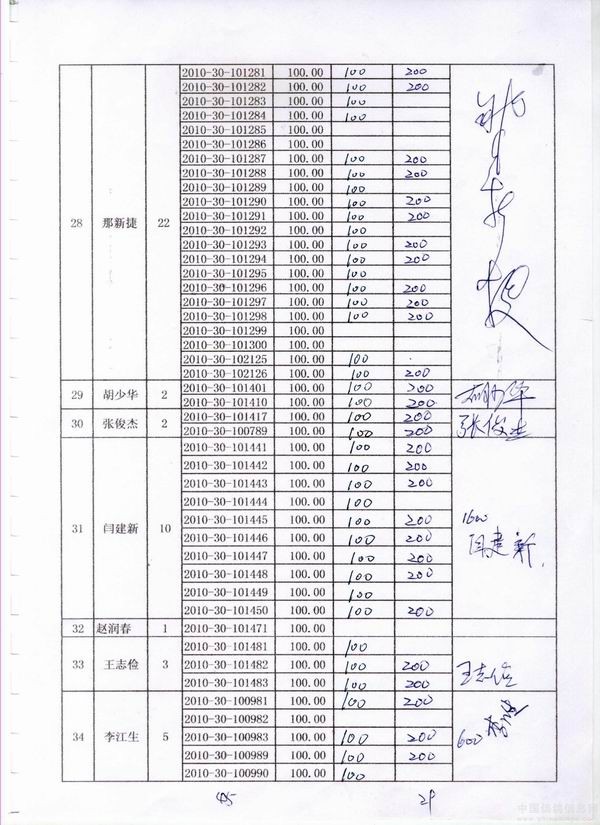 2010-30-101281 100.00 100 200
2010-30-101282 100.00 100 200
2010-30-101283 100.00 100
2010-30-101284 100.00 100
2010-30-101285 100.00
2010-30-101286 100.00
2010-30-101287 100.00 100 200
2010-30-101288 100.00 100 200
2010-30-101289 100.00 100
2010-30-101290 100.00 100 200
28 那新捷 22 2010-30-101291 100.00 100 200
2010-30-101292 100.00 100
2010-30-101293 100.00 100 200
2010-30-101294 100.00 100 200
2010-30-101295 100.00 100
2010-30-101296 100.00 100 200
2010-30-101297 100.00 100 200
2010-30-101298 100.00 100 200
2010-30-101299 100.00
2010-30-101300 100.00
2010-30-102125 100.00 100
2010-30-102126 100.00 100 200
29 胡少华 2 2010-30-101401 100.00 100 200 胡少华
2010-30-101410 100.00 100 200
30 张俊杰 2 2010-30-101417 100.00 100 200 张俊杰
2010-30-100789 100.00 100 200
2010-30-101441 100.00 100 200
2010-30-101442 100.00 100 200
2010-30-101443 100.00 100 200
2010-30-101444 100.00 100
2010-30-101445 100.00 100 200 1600
31 闫建新 10 2010-30-101446 100.00 100 200 闫建新
2010-30-101447 100.00 100 200
2010-30-101448 100.00 100 200
2010-30-101449 100.00 100
2010-30-101450 100.00 100 200
32 赵润春 1 2010-30-101471 100.00
2010-30-101481 100.00 100
33 王志俭 3 2010-30-101482 100.00 100 200 王志俭
2010-30-101483 100.00 100 200
2010-30-100981 100.00 100 200
2010-30-100982 100.00
34 李江生 5 2010-30-100983 100.00 100 200 600
2010-30-100989 100.00 100 200
2010-30-100990 100.00 100
45 29
中国信鸽信息网